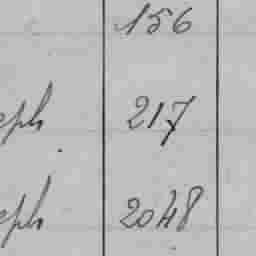 156
eph 217
eph 2048